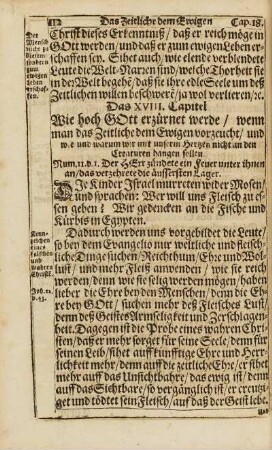 112 Das Zeitliche dem Ewigen Cap.18.
Der
Mensch
nicht zu
diesem/
sondern
zum
ewigen
Leben
erschaf-
fen.
Christ dieses Erkenntnuß/ daß er reich möge in
GOtt werden/ und daß er zum ewigen Leben er-
schaffen sey. Sihet auch/ wie elende verblendete
Leute die Welt-Narren sind/ welche Thorheit sie
in der Welt begehē/ daß sie ihre edle Seele um deß
Zeitlichen willen beschwerē/ ja wol verlieren/ ꝛc.
Das XVIII. Capitel
Wie hoch GOtt erzürnet werde / wenn
man das Zeitliche dem Ewigen vorzeucht/ und
wie und warum wir mit unserm Hertzen nicht an den
Creaturen hangen sollen.
Num.11.v.1. Der HErr zündete ein Feuer unter ihnen
an/ das verzehrete die äussersten Lager.
DJe Kinder Jsrael murreten wider Mosen/
und sprachen: Wer will uns Fleisch zu es-
sen geben? Wir gedencken an die Fische und
Kürbis in Egypten.
Kenn-
zeichen
eines
falschen
und
wahren
Christē.
Joh.12.
v.43.
Dadurch werden uns vorgebildet die Leute/
so bey dem Evangelio nur weltliche und fleisch-
liche Dinge suchen/ Reichthum/ Ehre und Wol-
lust/ und mehr Fleiß anwenden/ wie sie reich
werden/ denn wie sie selig werden mögen/ haben
lieber die Ehre bey den Menschen/ denn die Eh-
re bey GOtt/ suchen mehr deß Fleisches Lust/
denn deß Geistes Armseligkeit und Zerschlagen-
heit. Dagegen ist die Probe eines wahren Chri-
sten/ daß er mehr sorget für seine Seele/ denn für
seinen Leib/ sihet auff künfftige Ehre und Herr-
lichkeit mehr/ denn auff die zeitliche Ehre/ er sihet
mehr auff das Unsichtbahre/ das ewig ist/ denn
auff das Sichtbare/ so vergänglich ist/ er creutzi-
get und tödtet sein Fleisch/ auf daß der Geist lebe.